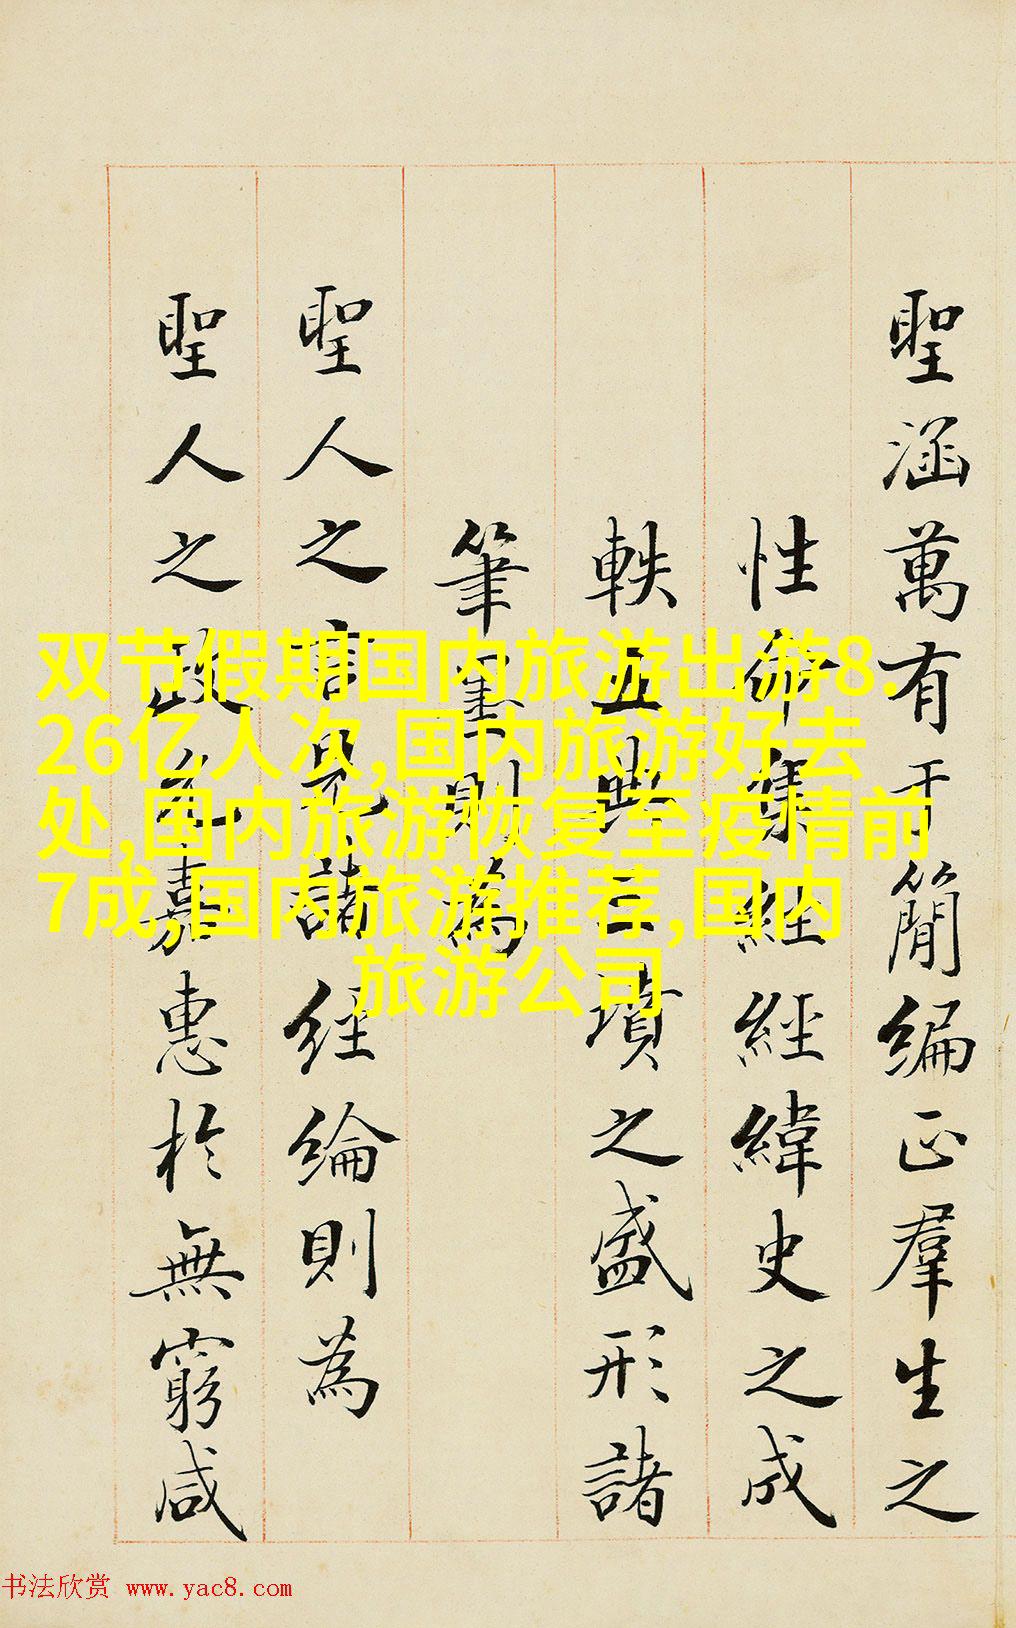 聖涵萬有于簡編正羣生之
性命集經經緯史之成
軼五典三墳之盛形諸
筆墨則為
聖人之言見諸經綸則為
聖人之政嘉惠於無窮咸
双节假期国内旅游出游8.
26亿人次,国内旅游好去
处,国内旅游恢复至疫情前
7成,国内旅游推荐,国内
旅游公司
书法欣赏 www.yac8.com